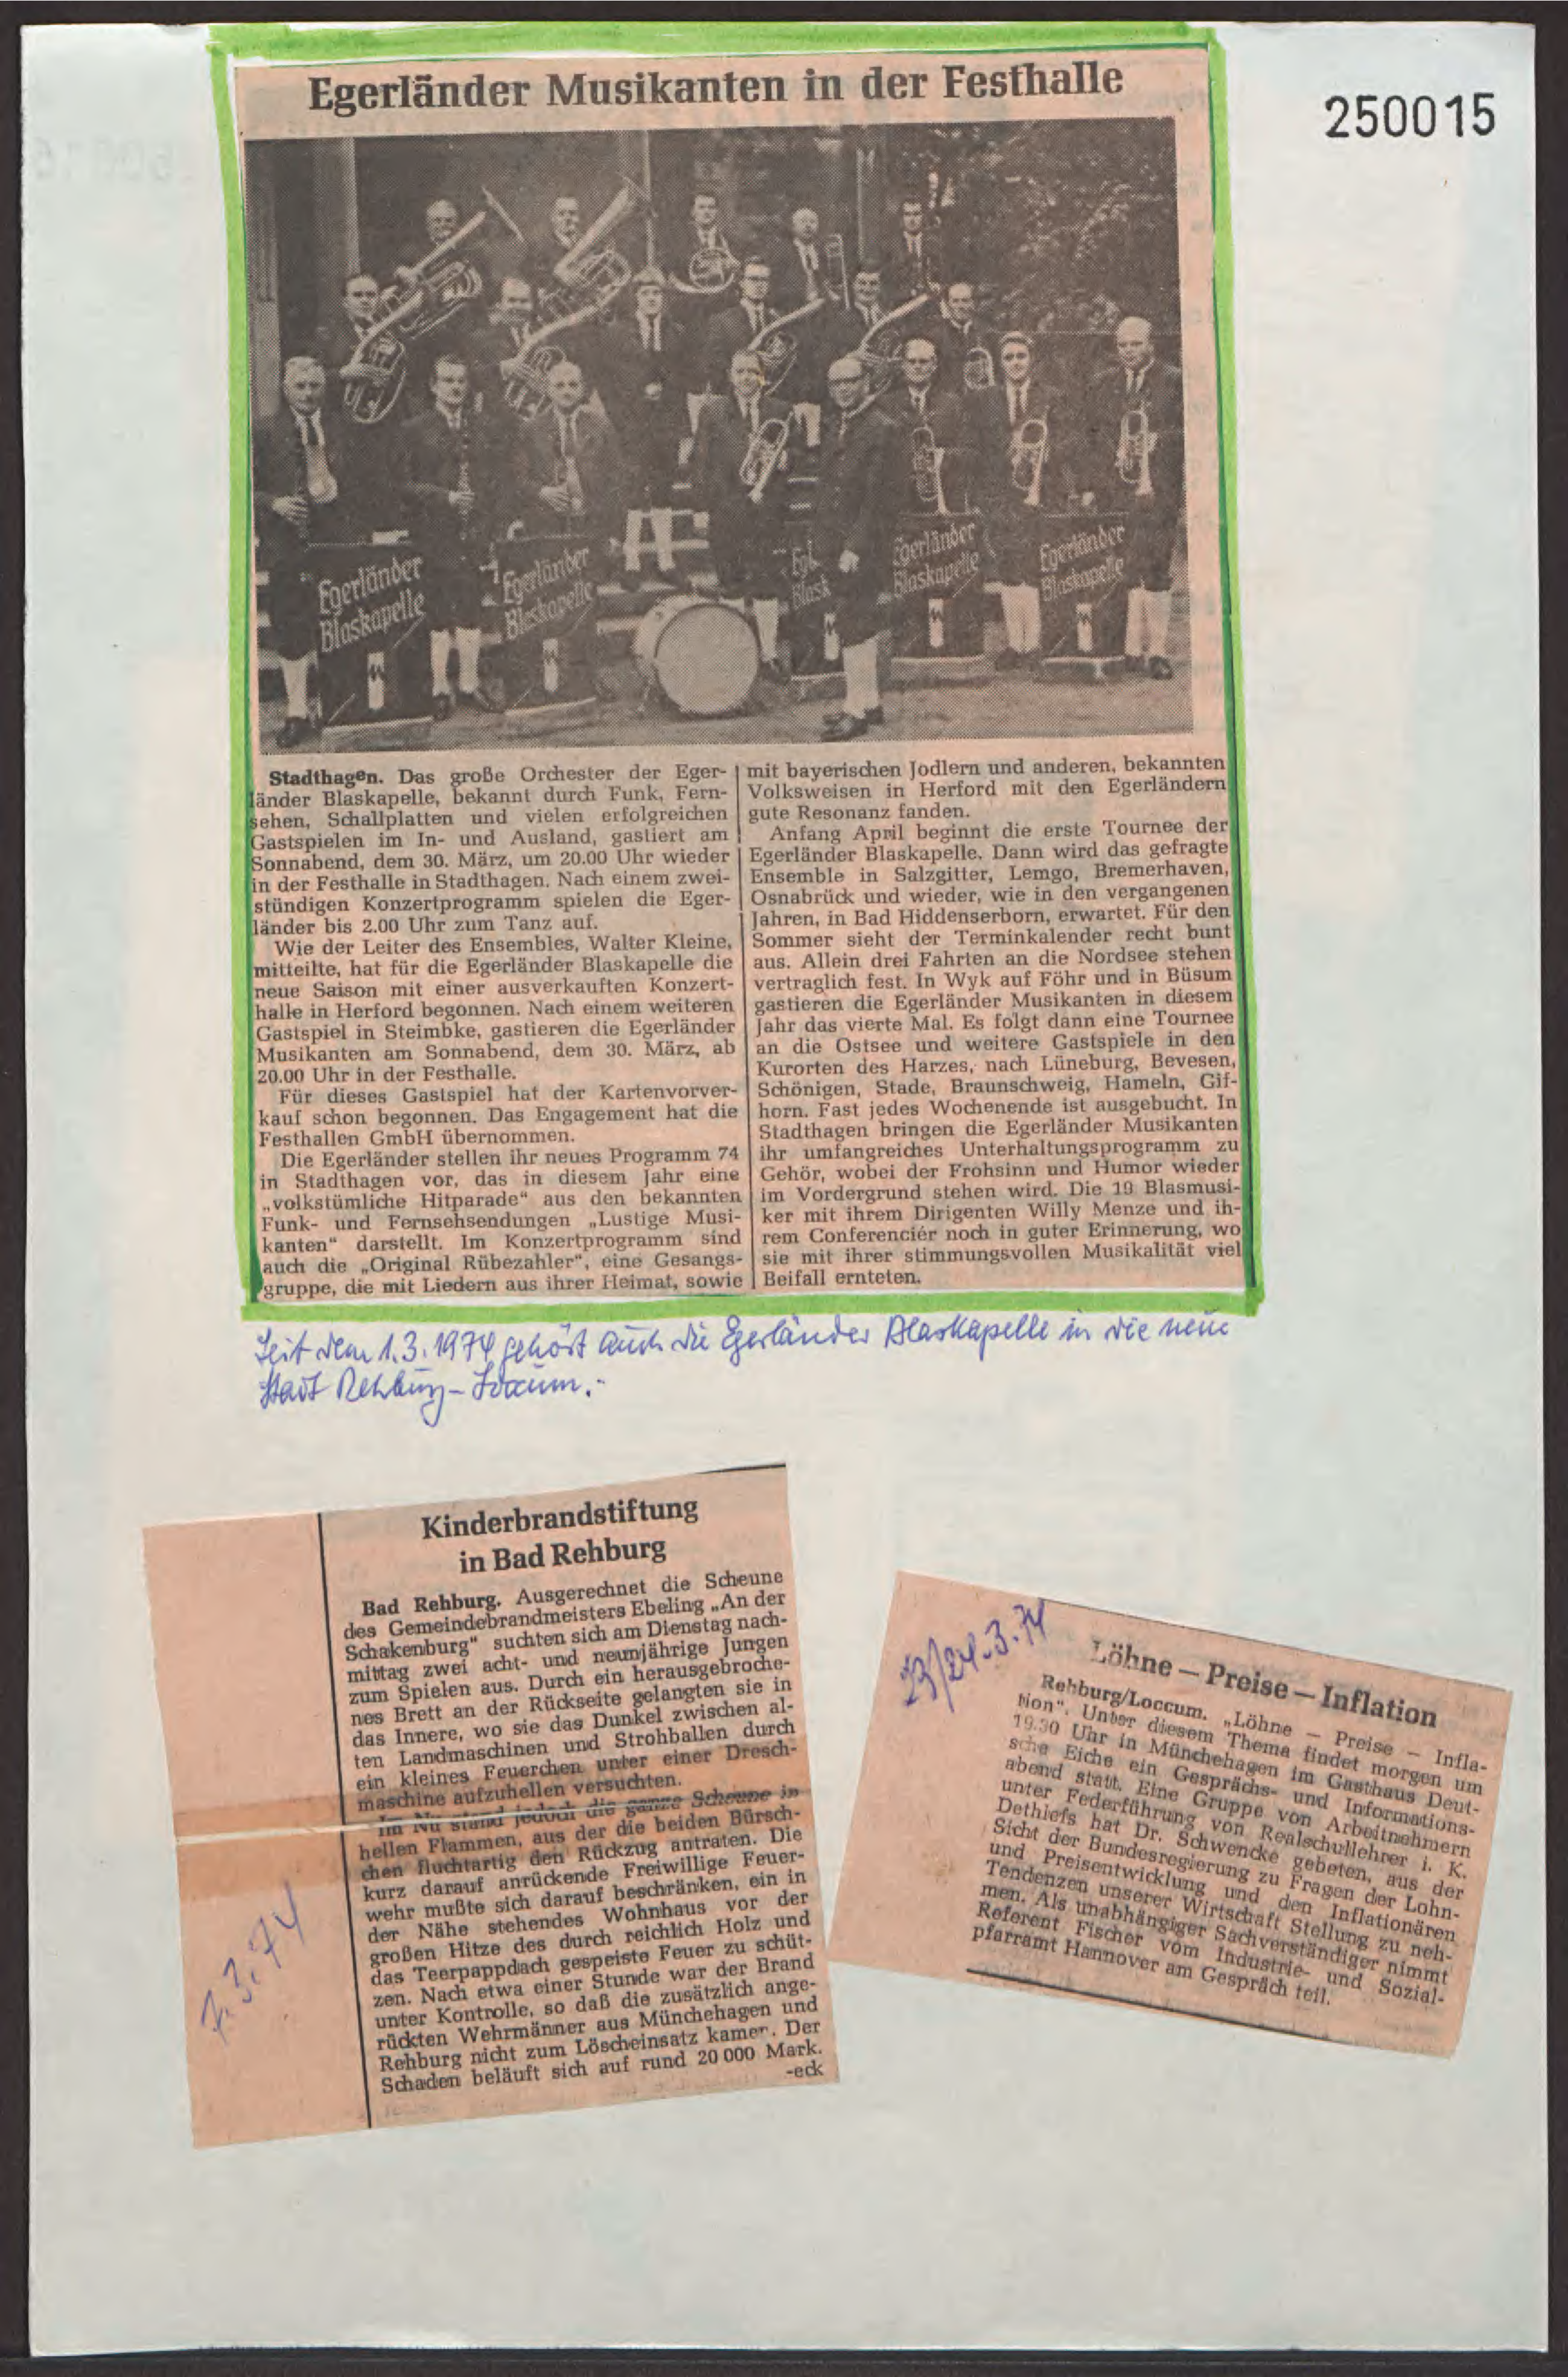 250015
Egerländer Musikanten in der Festhalle
Egerländer
Blaskapelle
Egerländer
Blaskapelle
Egl
Blask
Egerländer
Blaskapelle
Egerländer
Blaskapelle
Stadthagen. Das große Orchester der Eger-
länder Blaskapelle, bekannt durch Funk, Fern-
sehen, Schallplatten und vielen erfolgreichen
Gastspielen im In- und Ausland, gastiert am
Sonnabend, dem 30. März, um 20.00 Uhr wieder
in der Festhalle in Stadthagen. Nach einem zwei-
stündigen Konzertprogramm spielen die Eger-
länder bis 2.00 Uhr zum Tanz auf.
Wie der Leiter des Ensembles, Walter Kleine,
mitteilte, hat für die Egerländer Blaskapelle die
neue Saison mit einer ausverkauften Konzert-
halle in Herford begonnen. Nach einem weiteren
Gastspiel in Steimbke, gastieren die Egerländer
Musikanten am Sonnabend, dem 30. März, ab
20.00 Uhr in der Festhalle.
Für dieses Gastspiel hat der Kartenvorver-
kauf schon begonnen. Das Engagement hat die
Festhallen GmbH übernommen.
Die Egerländer stellen ihr neues Programm 74
in Stadthagen vor, das in diesem Jahr eine
„volkstümliche Hitparade“ aus den bekannten
Funk- und Fernsehsendungen „Lustige Musi-
kanten“ darstellt. Im Konzertprogramm sind
auch die „Original Rübezahler“, eine Gesangs-
gruppe, die mit Liedern aus ihrer Heimat, sowie
mit bayerischen Jodlern und anderen, bekannten
Volksweisen in Herford mit den Egerländern
gute Resonanz fanden.
Anfang April beginnt die erste Tournee der
Egerländer Blaskapelle. Dann wird das gefragte
Ensemble in Salzgitter, Lemgo, Bremerhaven,
Osnabrück und wieder, wie in den vergangenen
Jahren, in Bad Hiddenserborn, erwartet. Für den
Sommer sieht der Terminkalender recht bunt
aus. Allein drei Fahrten an die Nordsee stehen
vertraglich fest. In Wyk auf Föhr und in Büsum
gastieren die Egerländer Musikanten in diesem
Jahr das vierte Mal. Es folgt dann eine Tournee
an die Ostsee und weitere Gastspiele in den
Kurorten des Harzes, nach Lüneburg, Bevesen,
Schönigen, Stade, Braunschweig, Hameln, Gif-
horn. Fast jedes Wochenende ist ausgebucht. In
Stadthagen bringen die Egerländer Musikanten
ihr umfangreiches Unterhaltungsprogramm zu
Gehör, wobei der Frohsinn und Humor wieder
im Vordergrund stehen wird. Die 19 Blasmusi-
ker mit ihrem Dirigenten Willy Menze und ih-
rem Conferenciér noch in guter Erinnerung, wo
sie mit ihrer stimmungsvollen Musikalität viel
Beifall ernteten.
Seit dem 1.3.1974 gehört auch die Egerländer Blaskapelle in die neue
Stadt Rehburg-Loccum.-
Kinderbrandstiftung
in Bad Rehburg
Bad Rehburg. Ausgerechnet die Scheune
des Gemeindebrandmeisters Ebeling „An der
Schakenburg“ suchten sich am Dienstag nach-
mittag zwei acht- und neunjährige Jungen
zum Spielen aus. Durch ein herausgebroche-
nes Brett an der Rückseite gelangten sie in
das Innere, wo sie das Dunkel zwischen al-
ten Landmaschinen und Strohballen durch
ein kleines Feuerchen unter einer Dresch-
maschine aufzuhellen versuchten.
Im Nu stand jedoch die ganze Scheune in
hellen Flammen, aus der die beiden Bürsch-
chen fluchtartig den Rückzug antraten. Die
kurz darauf anrückende Freiwillige Feuer-
wehr mußte sich darauf beschränken, ein in
der Nähe stehendes Wohnhaus vor der
großen Hitze des durch reichlich Holz und
das Teerpappdach gespeiste Feuer zu schüt-
zen. Nach etwa einer Stunde war der Brand
unter Kontrolle, so daß die zusätzlich ange-
rückten Wehrmänner aus Münchehagen und
Rehburg nicht zum Löscheinsatz kamen. Der
Schaden beläuft sich auf rund 20 000 Mark.
-eck
7.3.74
23/24.3.74
Löhne – Preise – Inflation
Rehburg/Loccum. „Löhne – Preise – Infla-
tion“. Unter diesem Thema findet morgen um
19.30 Uhr in Münchehagen im Gasthaus Deut-
sche Eiche ein Gesprächs- und Informations-
abend statt. Eine Gruppe von Arbeitnehmern
unter Federführung von Realschullehrer i. K.
Dethlefs hat Dr. Schwencke gebeten, aus der
Sicht der Bundesregierung zu Fragen der Lohn-
und Preisentwicklung und den Inflationären
Tendenzen unserer Wirtschaft Stellung zu neh-
men. Als unabhängiger Sachverständiger nimmt
Referent Fischer vom Industrie- und Sozial-
pfarramt Hannover am Gespräch teil.